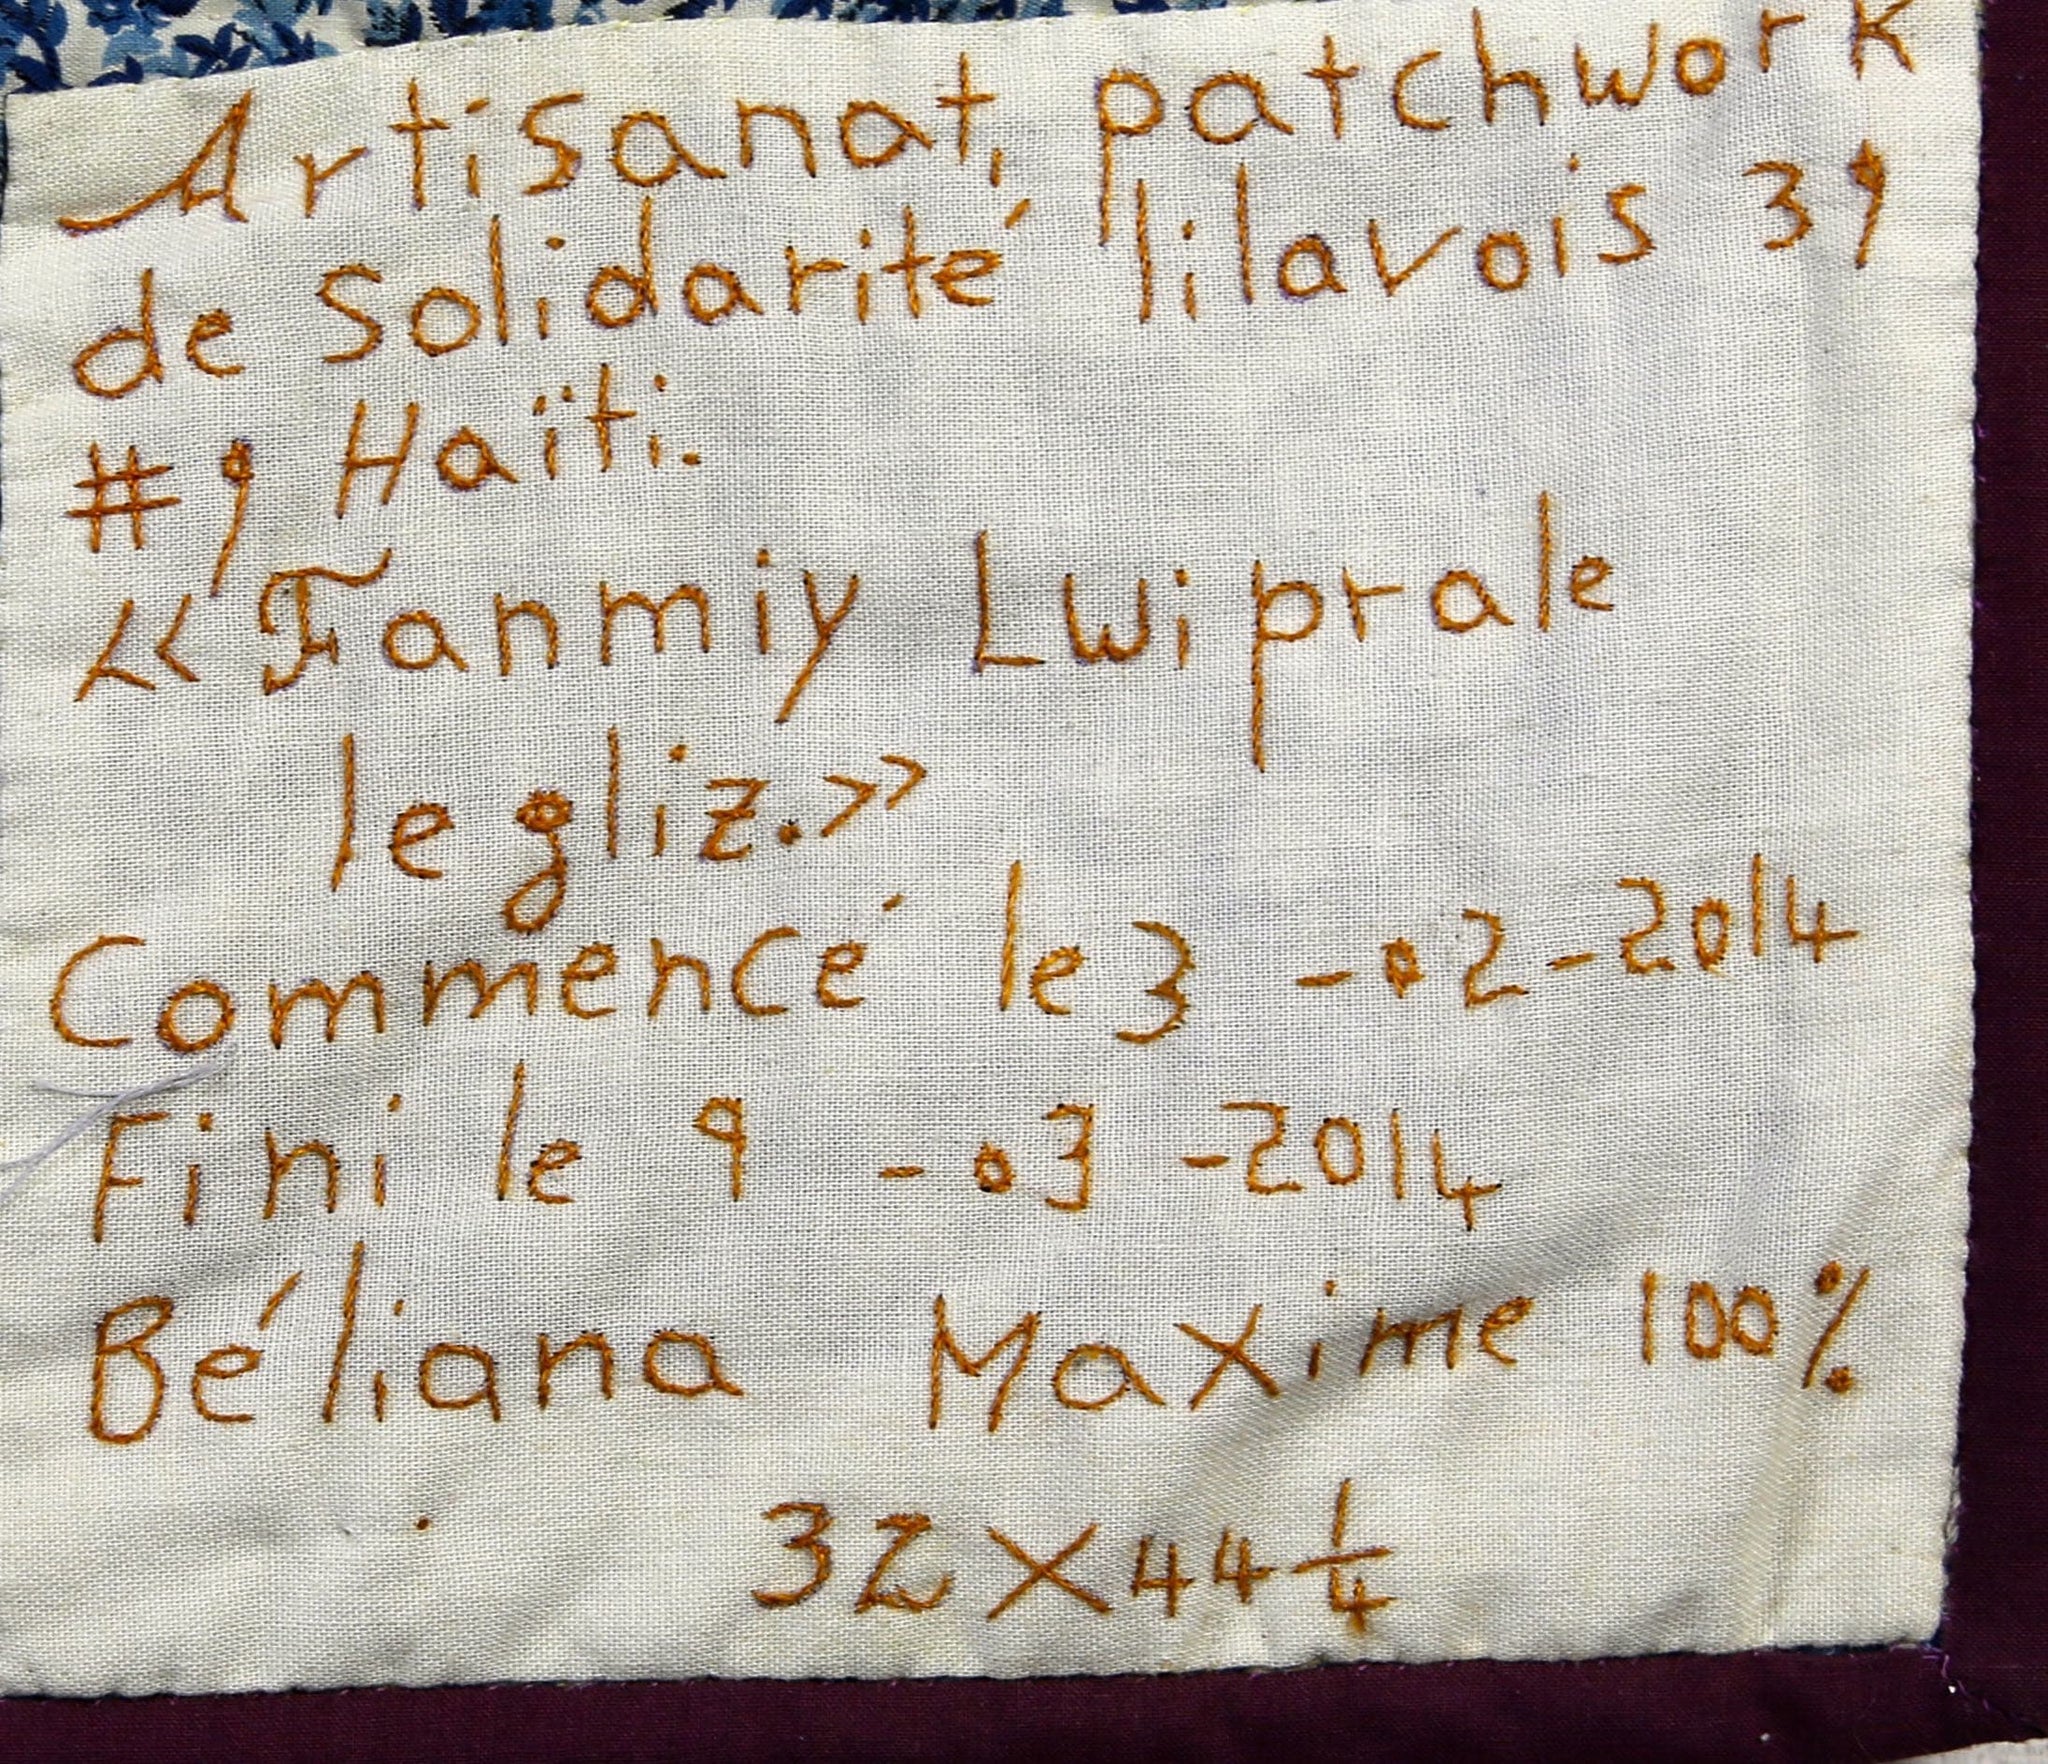 Artisanat, patchwork
de Solidarité lilavois 39
#9 Haïti.
<< Fanmiy Lwi prale
legliz.>>
Commencé le 3 -02-2014
Fini le 9 -03-2014
Béliana Maxime 100%
32 X 44 1/4